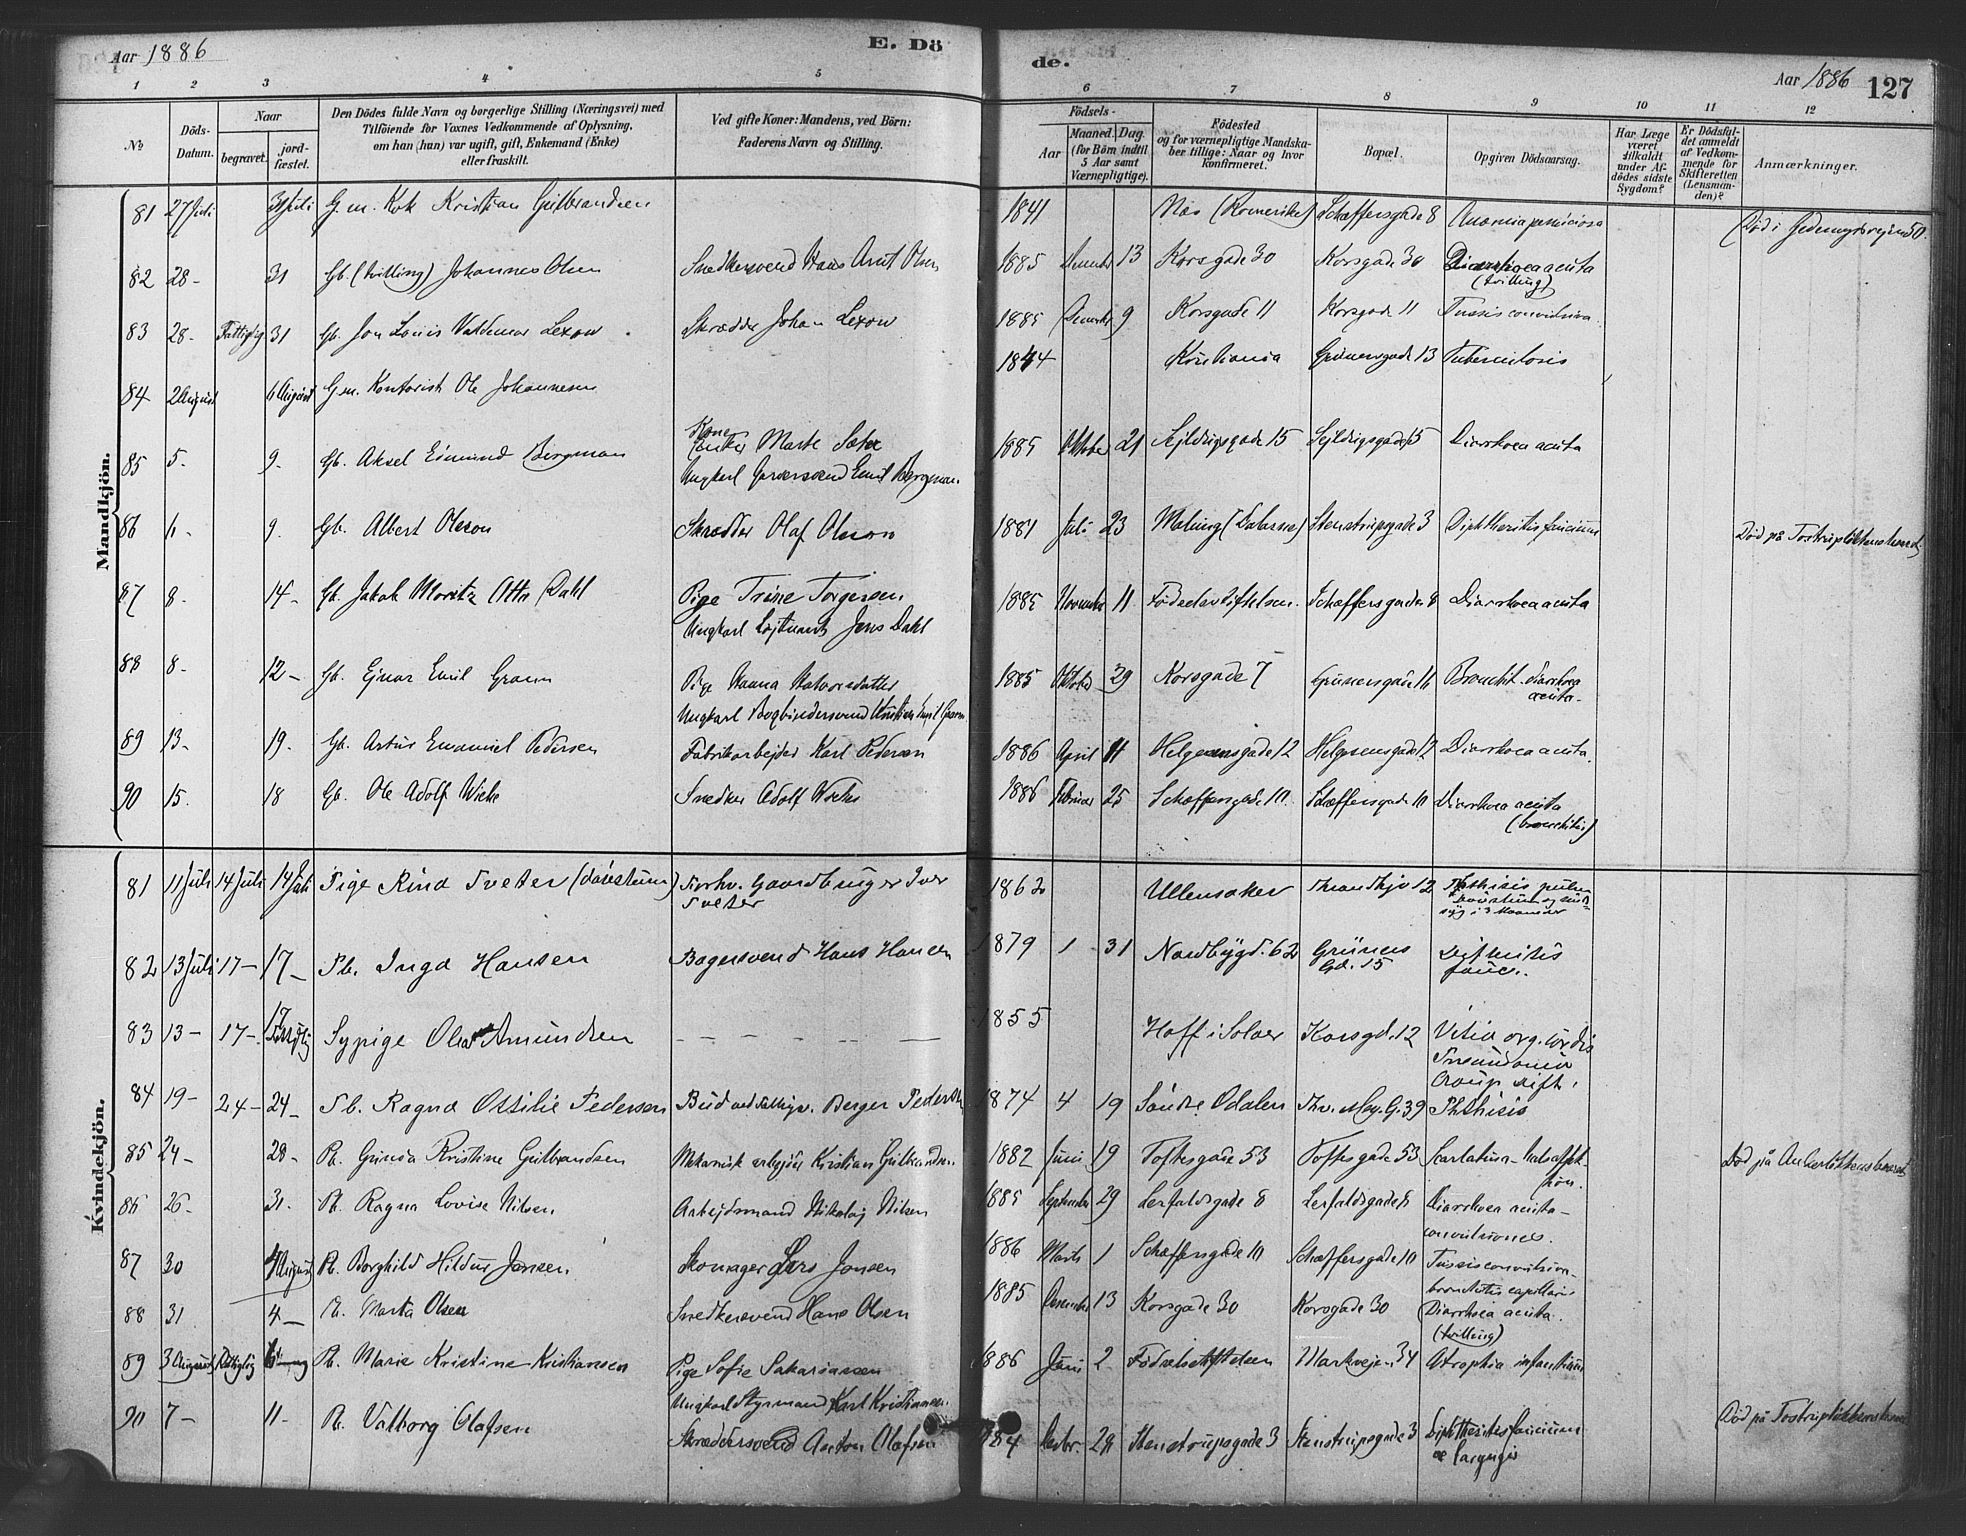 Aar 1886
E. Dö
de.
Aar 1886 127
1 2 3 4 5 6 7 8 9 10 11 12
No
Döds-Datum.
Naar
begravet.
jord-fæstet.
Den Dödes fulde Navn og borgerlige Stilling (Næringsvei) med
Tilföiende for Voxnes Vedkommende af Oplysning,
om han (hun) var ugift, gift, Enkemand (Enke)
eller fraskilt.
Ved gifte Koner: Mandens, ved Börn:
Faderens Navn og Stilling.
Födsels-
Aar
Maaned. Dag.
(for Börn indtil
5 Aar samt
Værnepligtige).
Födested
og for værnepligtige Mandska-
ber tillige: Naar og hvor
konfirmeret.
Bopæl.
Opgiven Dödsaarsag.
Har Læge
været
tilkaldt
under Af-
dödes sidste
Sygdom?
Er Dödsfal-
det anmeldt
af Vedkom-
mende for
Skifteretten
(Lensman-
den)?
Anmærkninger.
Mandkjön.
81 27 Juli 31 Juli G.m. Kok Kristian Gulbrandsen 1841 Næs (Romerike) Schæffersgade 8 Anæmia perniciosa
82 28 - 31 Gb. (tvilling) Johannes Olsen Snedkersvend Hans Arnt Olsen 1885 December 13 Korsgade 30 Korsgade 30 Diarrhoea acuta
(tvilling)
83 28 - Fattiglig 31 Gb. Jon Louis Valdemar Lexow Skrædder Johan Lexow 1885 December 9 Korsgade 11 Korsgade 11 Tussis convulsiva
84 2 August 6 August G.m. Kontorist Ole Johannesen 1844 Kristiania Grünersgade 13 Tuberculosis
85 5. 9. Gb. Aksel Edmund Bergman
Ungkarl Emil Bergman.
1885 Oktober 21 Sejldugsgade 15 Sejldugsgade 15 Diarrhoea acuta
86 6 - 9. Gb. Albert Olsson Skrædder Olaf Olsson 1881 Juli 23 Malung (Dalarne) Stenstrupsgade 3 Diphtheritis faucium
87 8 - 14 - Gb. Jakob Moritz Otto Dahl Pige Trine Torgersen
Ungkarl Løjtnant Jens Dahl
1885 November 11 Fødselsstiftelsen. Schæffersgade 8 Diarrhoea acuta
88 8 - 12 - Gb. Ejnar Emil Gram Pige Hanna Halvorsdatter
Ungkarl Bogbindersvend Kristian Emil Gram
1885 Oktober 29 Korsgade 7 Grünersgade 16 Bronchit. diarrhoea
acuta.
89 13 - 19. Gb. Artur Emanuel Pedersen Fabrikarbejder Karl Pedersen 1886 April 11 Helgesensgade 12 Helgesensgade 12 Diarrhoea acuta.
90 15. 18 Gb. Ole Adolf Wiche Snedker Adolf Wiche 1886 Februar 25 Schæffersgade 10 Schæffersgade 10 Diarrhoea acuta
(bronchitis)
Kvindekjön.
81 11 Juli 14 Juli 14 Juli Pige Rina Tveter (døvstum) Forhv. Gaardbruger Iver
Tveter
1862 Ullensaker Throndhjv 12 Phthisis pulm
82 13 Juli 17 - 17 - Pb. Inga Hansen Bagersvend Hans Hansen 1879 1 31 Nordbygd. 62 Grüners
Gd. 15
Difthitis
fauc.
83 13 - 17 - 17 Fattiglig Sypige Olea Amundsen - - - - - 1855 Hoff i Solør Korsgd. 12 Vitia org. cordis
84 19 - 24 - 24 - Pb. Ragna Ottilie Pedersen Bud ved Fattigv. Berger Pedersen 1874 4 19 Søndre Odalen Thv. Mey. G. 39 Croup dift.
Phthisis
85 24 - 28 - Pb. Gunda Kristine Gulbrandsen Mekanisk arbejder Kristian Gulbrandsen 1882 Juni 19 Toftesgade 53 Toftesgade 53 Scarlatina -
Død på Ankerløkkens lasaret
86 26 - 31 - Pb. Ragna Lovise Nilsen Arbejdsmand Nikolaj Nilsen 1885 September 29 Lerfaldsgade 8 Lerfaldsgade 8 Diarrhoea acuta -
convulsiones.
87 30 4 August Pb. Borghild Hildur Jensen Skomager Lars Jonsen 1886 Marts 1 Schæffersgade 10 Schæffersgade 10 Tussis convulsiva -
bronchitis capillaris
88 31 4 - Pb. Marta Olsen Snedkersvend Hans Olsen 1885 December 13 Korsgade 30 Korsgade 30 Diarrhoea acuta.
(tvilling)
89 3 August Fattiglig Pb. Marie Kristine Kristiansen Pige Sofie Sakariassen
Ungkarl Styrmand Karl Kristiansen.
1886 Juni 2 Fødselsstiftelsen Markvejen 34 Atrophia infantium
90 7 - 11 - Pb. Valborg Olafsen Skræddersvend Anton Olafsen 29 Stenstrupsgade 3 Stenstrupsgade 3 Diphtheritis faucium